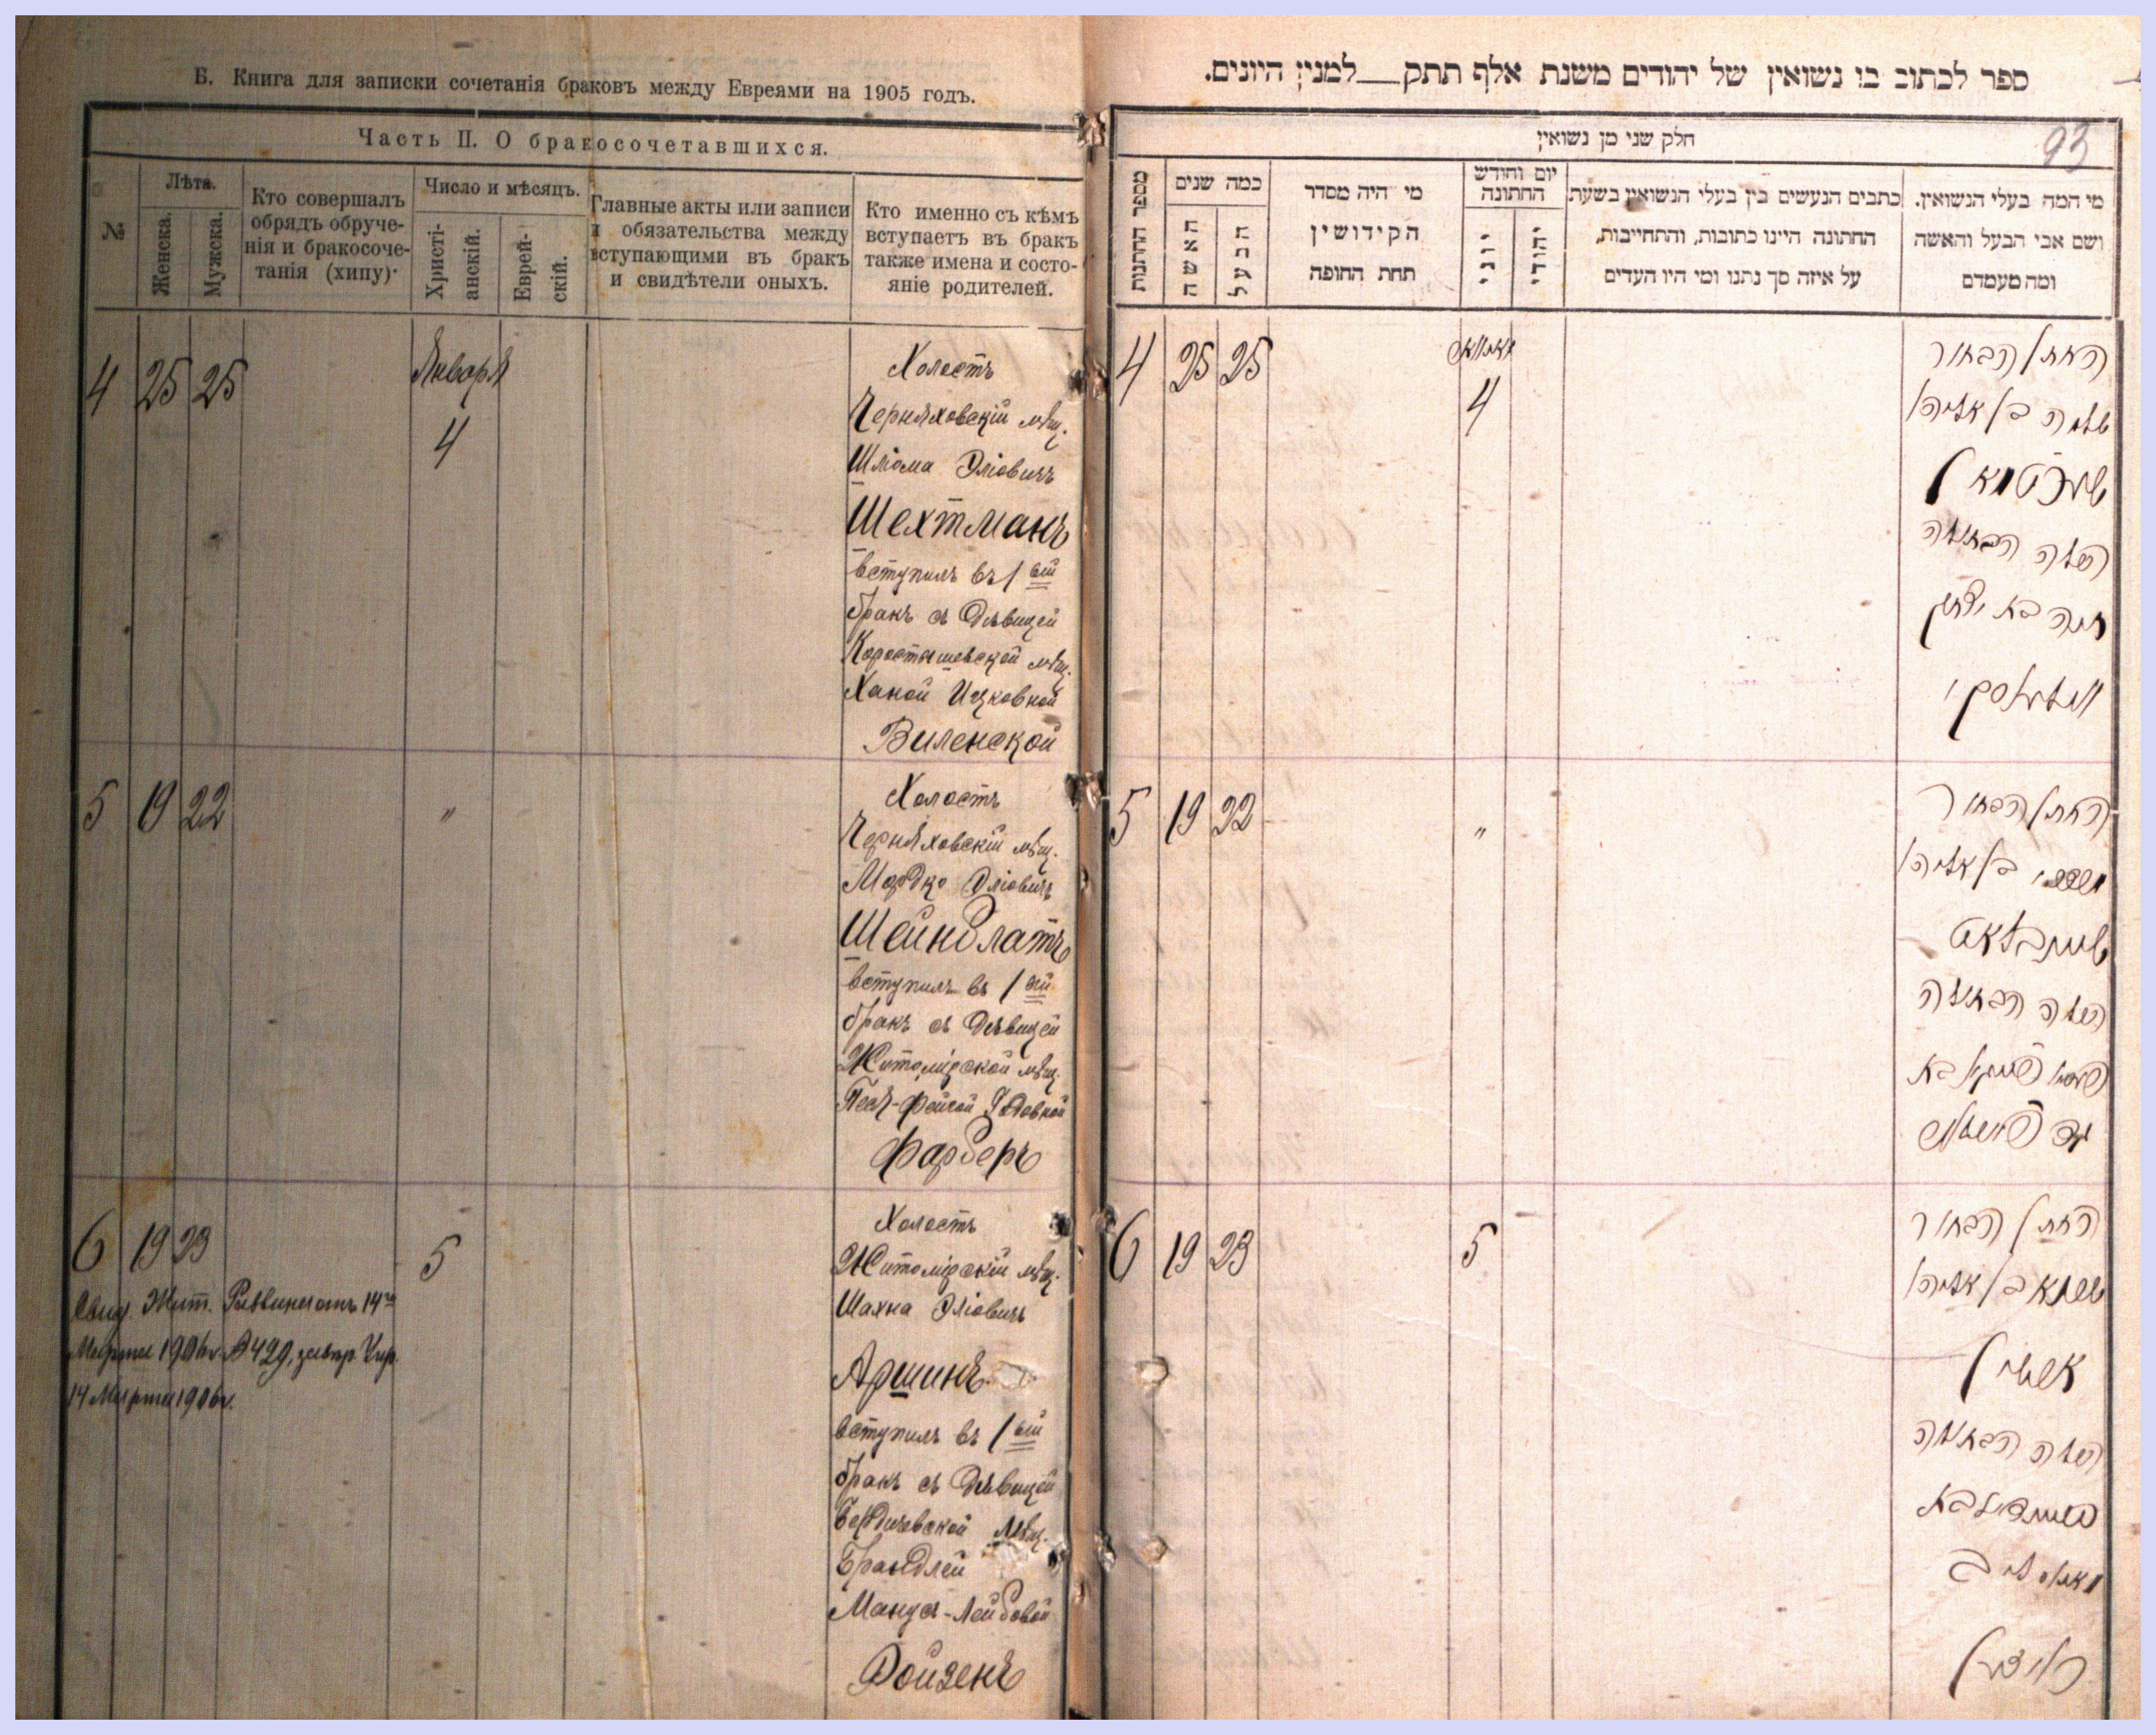 Б. Книга для записки сочетанія браковъ между Евреями на 1905 годъ.
Часть II. О бракосочетавшихся.
№
Лѣта.
Женска.
Мужска.
Кто совершалъ
обрядъ обруче-
нія и бракосоче-
танія (хипу)·
Число и мѣсяцъ.
Христі-
анскій.
Еврей-
скій.
Главные акты или записи
и обязательства между
вступающими въ бракъ
и свидѣтели оныхъ.
Кто именно съ кѣмъ
вступаетъ въ бракъ
также имена и состо-
яніе родителей.
4 25 25 Января
4
Холостъ
Черняховскій мѣщ.
Шліома Эліовичъ
Шехтманъ
вступилъ въ 1 ый
бракъ съ дѣвицей
Коростышевской мѣщ.
Ханой Ицковной
Виленской
5 19 22 "
Холостъ
Черняховскій мѣщ.
Мордко Эліовичъ
Шейнблатъ
вступилъ въ 1 ый
бракъ съ дѣвицей
Житомірской мѣщ.
Песя-Фейгой
Фарберъ
6 19 23 5
Свид. Жит. Раввина отъ 14го
Марта 1906 г. №429,
14 Марта 1906 г.
Холостъ
Житомірскій мѣщ.
Шахна Эліовичъ
Аршинъ
вступилъ въ 1 ый
бракъ съ дѣвицей
Бердичевской мѣщ.
Брандлей
Лейбовой
Ройзенъ
ספר לכתוב בו נשואין של יהודים משנת אלף תתק למנין היונים.
93
חלק שני מן נשואין
מספר החתנות
כמה שנים
האשה
הבעל
מי היה מסדר
הקידושין
תחת החופה
יום וחודש
החתונה
יוני
יהודי
כתבים הנעשים בין בעלי הנשואין בשעת
החתונה היינו כתובות, והתחייבות,
על איזה סך נתנו ומי היו העדים
מי המה בעלי הנשואין.
ושם אבי הבעל והאשה
ומה מעמדם
4 25 25
4
החתן הבחור
שלמה בן אליהו
שעכטמאן
הכלה הבתולה
חנה בת יצחק
ווילענסקי
5 19 22 "
החתן הבחור
מרדכי בן אליהו
שיינבלאט
הכלה הבתולה
6 19 23 5
החתן הבחור
שכנא בן אליהו
ארשין
הכלה הבתולה